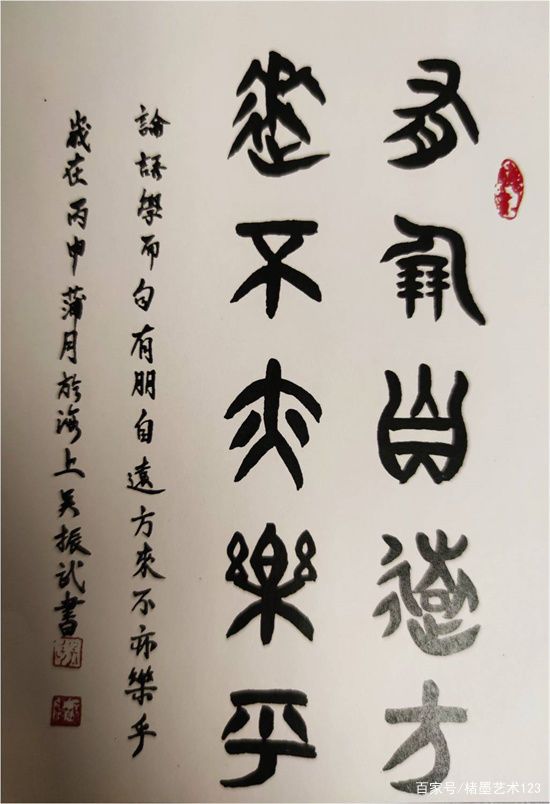 有朋自遠方
來不亦樂乎
論語學而句有朋自遠方來不亦樂乎
歲在丙申蒲月於海上吴振武書
百家号/楮墨艺术123